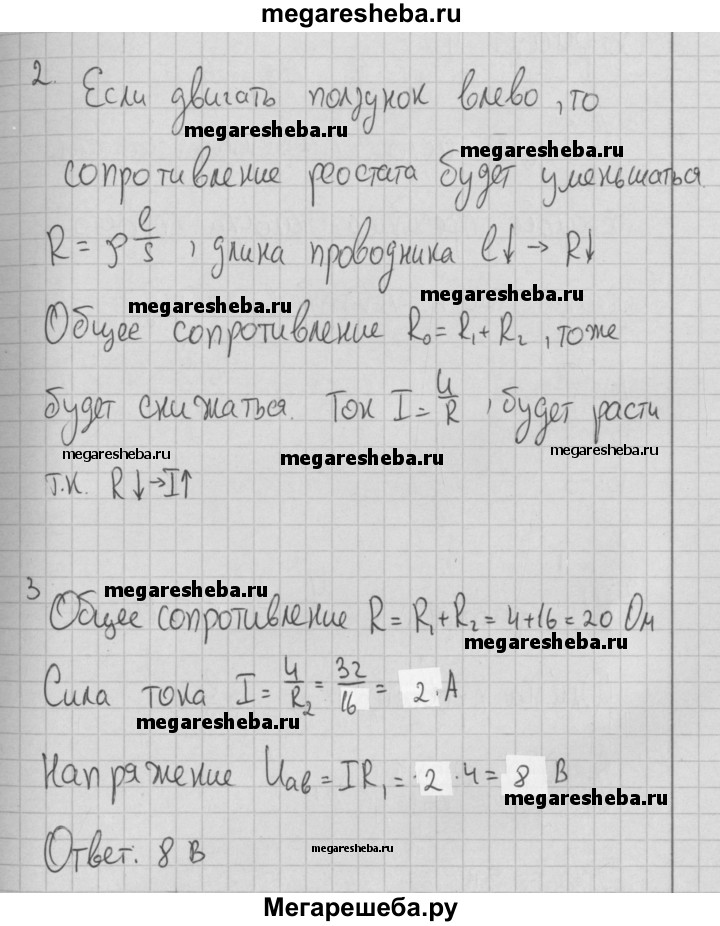 megaresheba.ru
2. Если двигать ползунок влево, то
megaresheba.ru
megaresheba.ru
сопротивление реостата будет уменьшаться.
R = ρ l/s , длина проводника l↓ → R↓
megaresheba.ru
megaresheba.ru
Общее сопротивление R₀ = R₁ + R₂, тоже
будет снижаться. Ток I = U/R , будет расти
megaresheba.ru
megaresheba.ru
megaresheba.ru
т.к. R↓→I↑
megaresheba.ru
3 Общее сопротивление R = R₁ + R₂ = 4+16 = 20 Ом
megaresheba.ru
Сила тока I = U/R₂ = 32/16 = 2 · А
megaresheba.ru
Напряжение Uав = IR₁ = · 2 · 4 = 8 В
megaresheba.ru
Ответ: 8 В
megaresheba.ru
Мегарешеба.ру